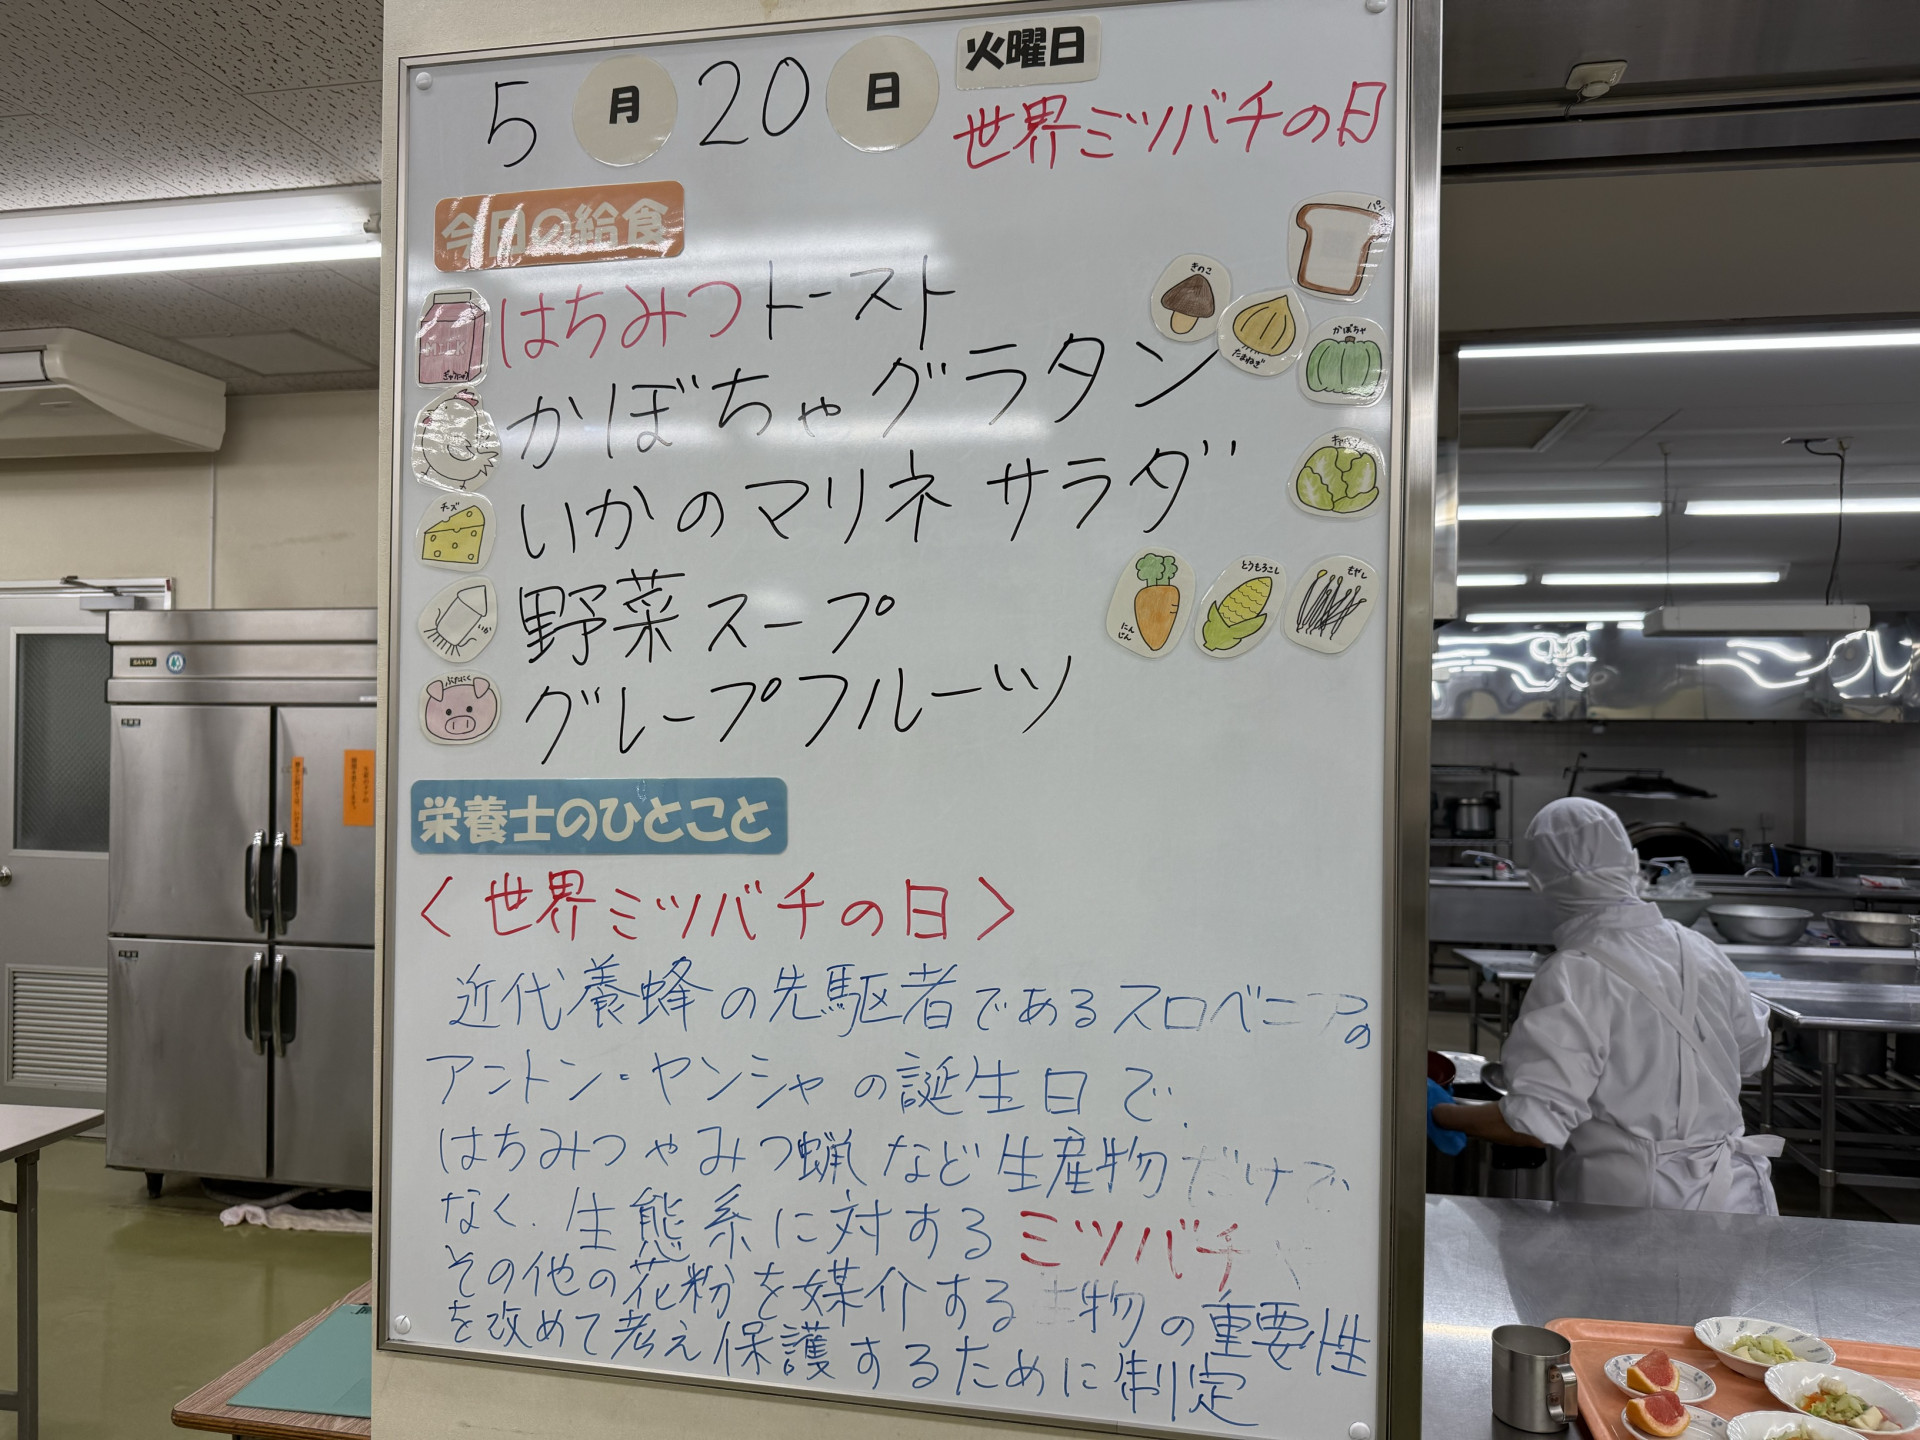 5月20日 火曜日
世界ミツバチの日
今日の給食
はちみつトースト
かぼちゃグラタン
いかのマリネサラダ
野菜スープ
グレープフルーツ
パン
きのこ
たまねぎ
かぼちゃ
キャベツ
にんじん
とうもろこし
もやし
MILK
ぎゅうにゅう
チーズ
いか
ぶたにく
栄養士のひとこと
<世界ミツバチの日>
近代養蜂の先駆者であるスロベニアの
アントン・ヤンシャの誕生日で、
はちみつやみつ蝋など生産物だけで
なく、生態系に対するミツバチや
その他の花粉を媒介する生物の重要性
を改めて考え保護するために制定
SANYO